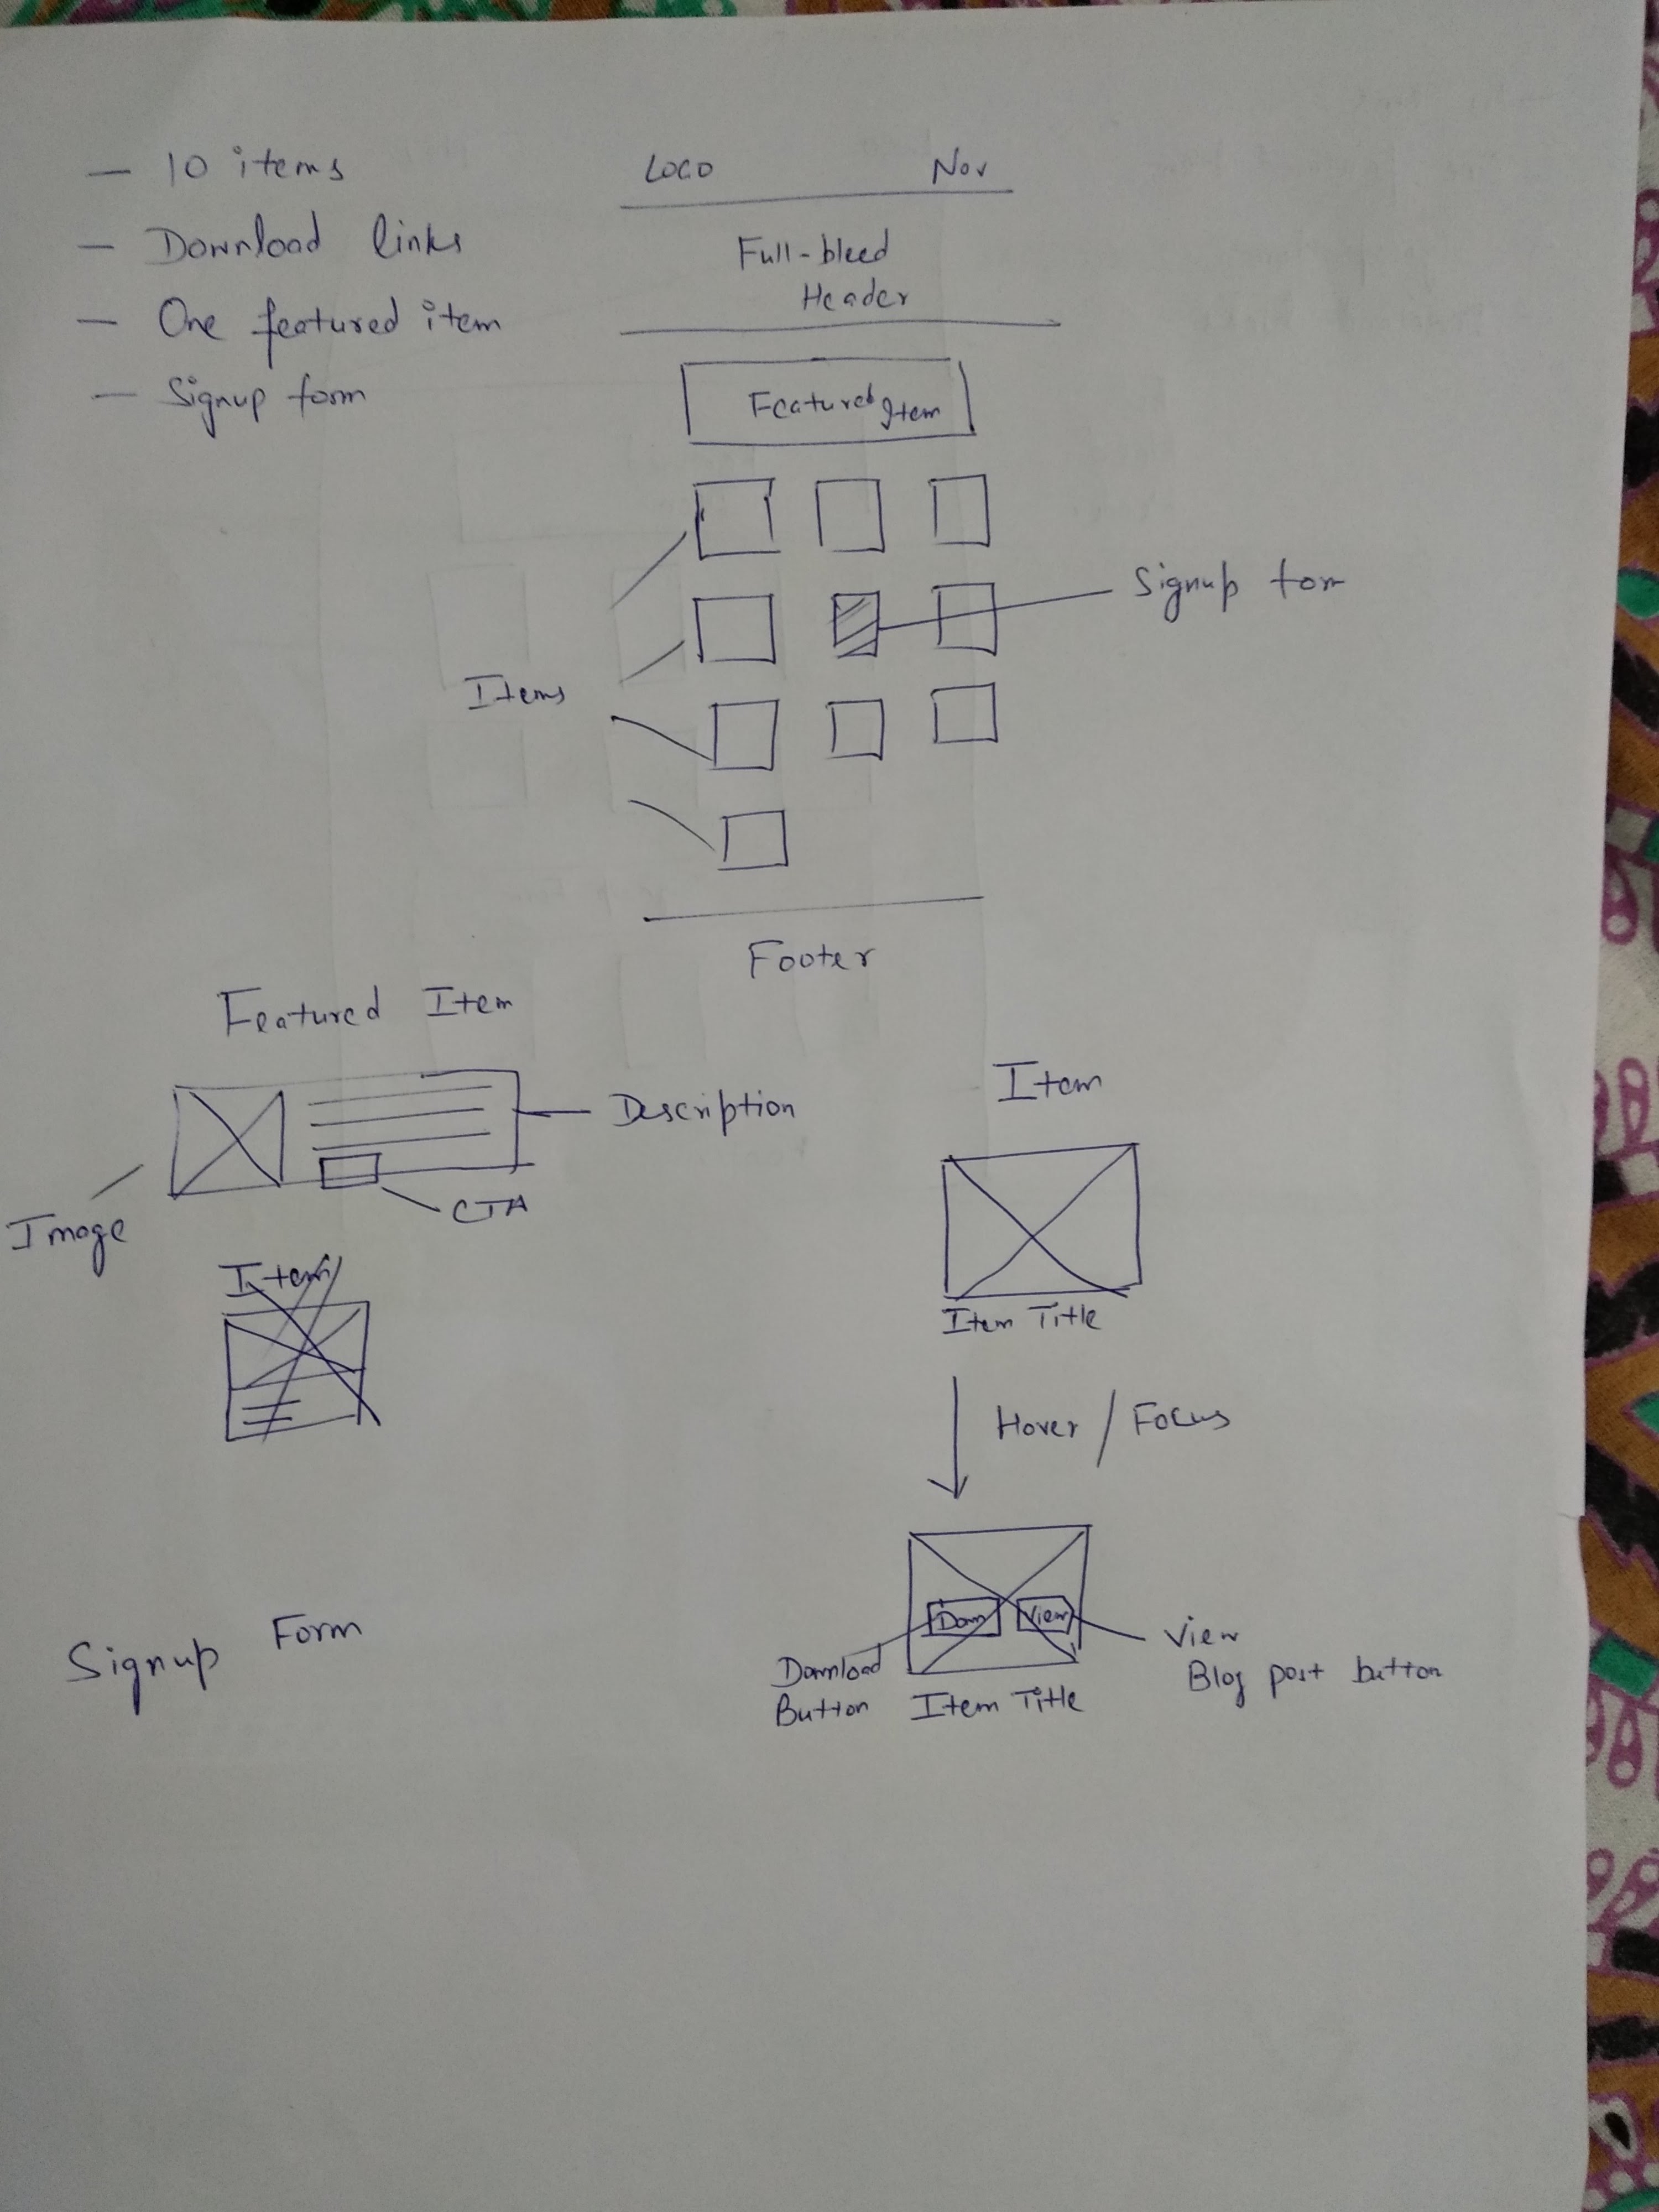 — 10 items
— Download links
— One featured item
— Signup form
LOGO Nav
Full-bleed
Header
Featured Item
Signup form
Items
Footer
Featured Item
Description
Image
CTA
Item
Item
Item Title
Hover / Focus
Down View
Download
Button
View
Blog post button
Item Title
Signup Form